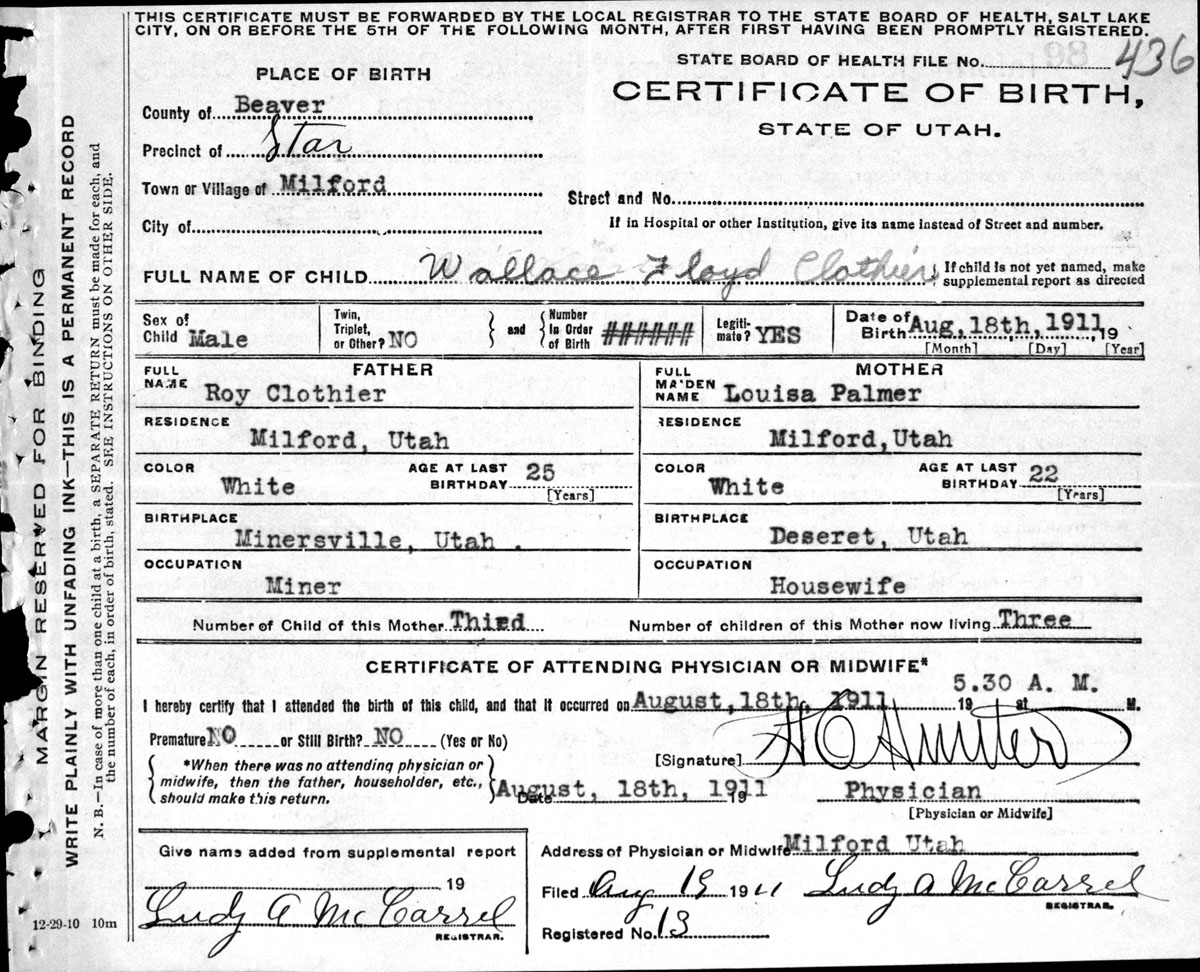 THIS CERTIFICATE MUST BE FORWARDED BY THE LOCAL REGISTRAR TO THE STATE BOARD OF HEALTH, SALT LAKE
CITY, ON OR BEFORE THE 5TH OF THE FOLLOWING MONTH, AFTER FIRST HAVING BEEN PROMPTLY REGISTERED.
STATE BOARD OF HEALTH FILE No. 436
PLACE OF BIRTH
CERTIFICATE OF BIRTH,
STATE OF UTAH.
County of Beaver
Precinct of Star
Town or Village of Milford
Street and No.
City of
If in Hospital or other Institution, give its name instead of Street and number.
FULL NAME OF CHILD Wallace Floyd Clothier
If child is not yet named, make
supplemental report as directed
Sex of
Child Male
Twin,
Triplet,
or Other? NO
and
Number
In Order
of Birth ######
Legiti-
mate? YES
Date of
Birth Aug, 18th, 1911, 19
[Month] [Day] [Year]
FATHER
FULL
NAME Roy Clothier
MOTHER
FULL
MAIDEN
NAME Louisa Palmer
RESIDENCE
Milford, Utah
RESIDENCE
Milford, Utah
COLOR
White
AGE AT LAST
BIRTHDAY 25
[Years]
COLOR
White
AGE AT LAST
BIRTHDAY 22
[Years]
BIRTHPLACE
Minersville, Utah .
BIRTHPLACE
Deseret, Utah
OCCUPATION
Miner
OCCUPATION
Housewife
Number of Child of this Mother Third
Number of children of this Mother now living Three
CERTIFICATE OF ATTENDING PHYSICIAN OR MIDWIFE*
5.30 A. M.
I hereby certify that I attended the birth of this child, and that it occurred on August, 18th, 1911 19 at M.
Premature NO or Still Birth? NO (Yes or No)
[Signature]
*When there was no attending physician or
midwife, then the father, householder, etc.,
should make this return.
Date August, 18th, 1911 19
Physician
[Physician or Midwife]
Give name added from supplemental report
19
Ludy A McCarrel
REGISTRAR.
Address of Physician or Midwife Milford Utah
Filed Aug 19 1911
Ludy A McCarrel
REGISTRAR.
Registered No. 13
12-29-10 10m
MARGIN RESERVED FOR BINDING
WRITE PLAINLY WITH UNFADING INK—THIS IS A PERMANENT RECORD
N. B.—In case of more than one child at a birth, a SEPARATE RETURN must be made for each, and
the number of each, in order of birth, stated. SEE INSTRUCTIONS ON OTHER SIDE.